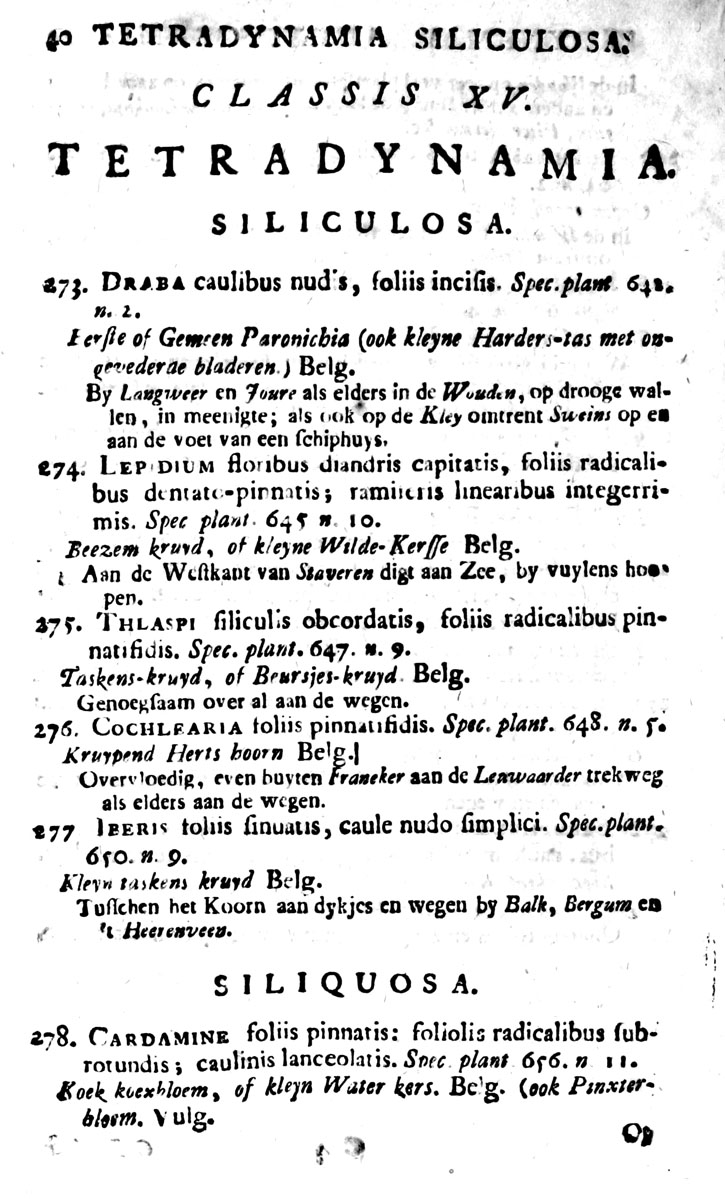 40 TETRADYNAMIA SILICULOSA.
CLASSIS XV.
TETRADYNAMIA.
SILICULOSA.
273. DRABA caulibus nudis, foliis incisis. Spec. plant 642.
n. 2.
Eerſte of Gemeen Paronichia (ook kleyne Harders-tas met on-
gevederde bladeren.) Belg.
By Langweer en Joure als elders in de Wouden, op drooge wal-
len, in meenigte; als ook op de Kley omtrent Sweins op en
aan de voet van een ſchiphuys.
274. LEPIDIUM floribus diandris capitatis, foliis radicali-
bus dentato-pinnatis; ramiferis linearibus integerri-
mis. Spec plant. 645 n. 10.
Beezem kruyd, of kleyne Wilde-Kerſſe Belg.
Aan de Weſtkant van Staveren digt aan Zee, by vuylens hoo-
pen.
275. THLASPI ſiliculis obcordatis, foliis radicalibus pin-
natifidis. Spec. plant. 647. n. 9.
Taskens-kruyd, of Beursjes-kruyd. Belg.
Genoegſaam over al aan de wegen.
276. COCHLEARIA foliis pinnatifidis. Spec. plant. 648. n. 5.
Kruypend Herts hoorn Belg.
Overvloedig, even buyten Franeker aan de Leuwaarder trekweg
als elders aan de wegen.
277 IBERIS foliis ſinuatis, caule nudo ſimplici. Spec. plant.
650. n. 9.
Kleyn taskens kruyd Belg.
Tuſſchen het Koorn aan dykjes en wegen by Balk, Bergum en
't Heerenveen.
SILIQUOSA.
278. CARDAMINE foliis pinnatis: foliolis radicalibus ſub-
rotundis; caulinis lanceolatis. Spec. plant 656. n 11.
Koek koexbloem, of kleyn Water kers. Belg. (ook Pinxter-
bloem. Vulg.
Op